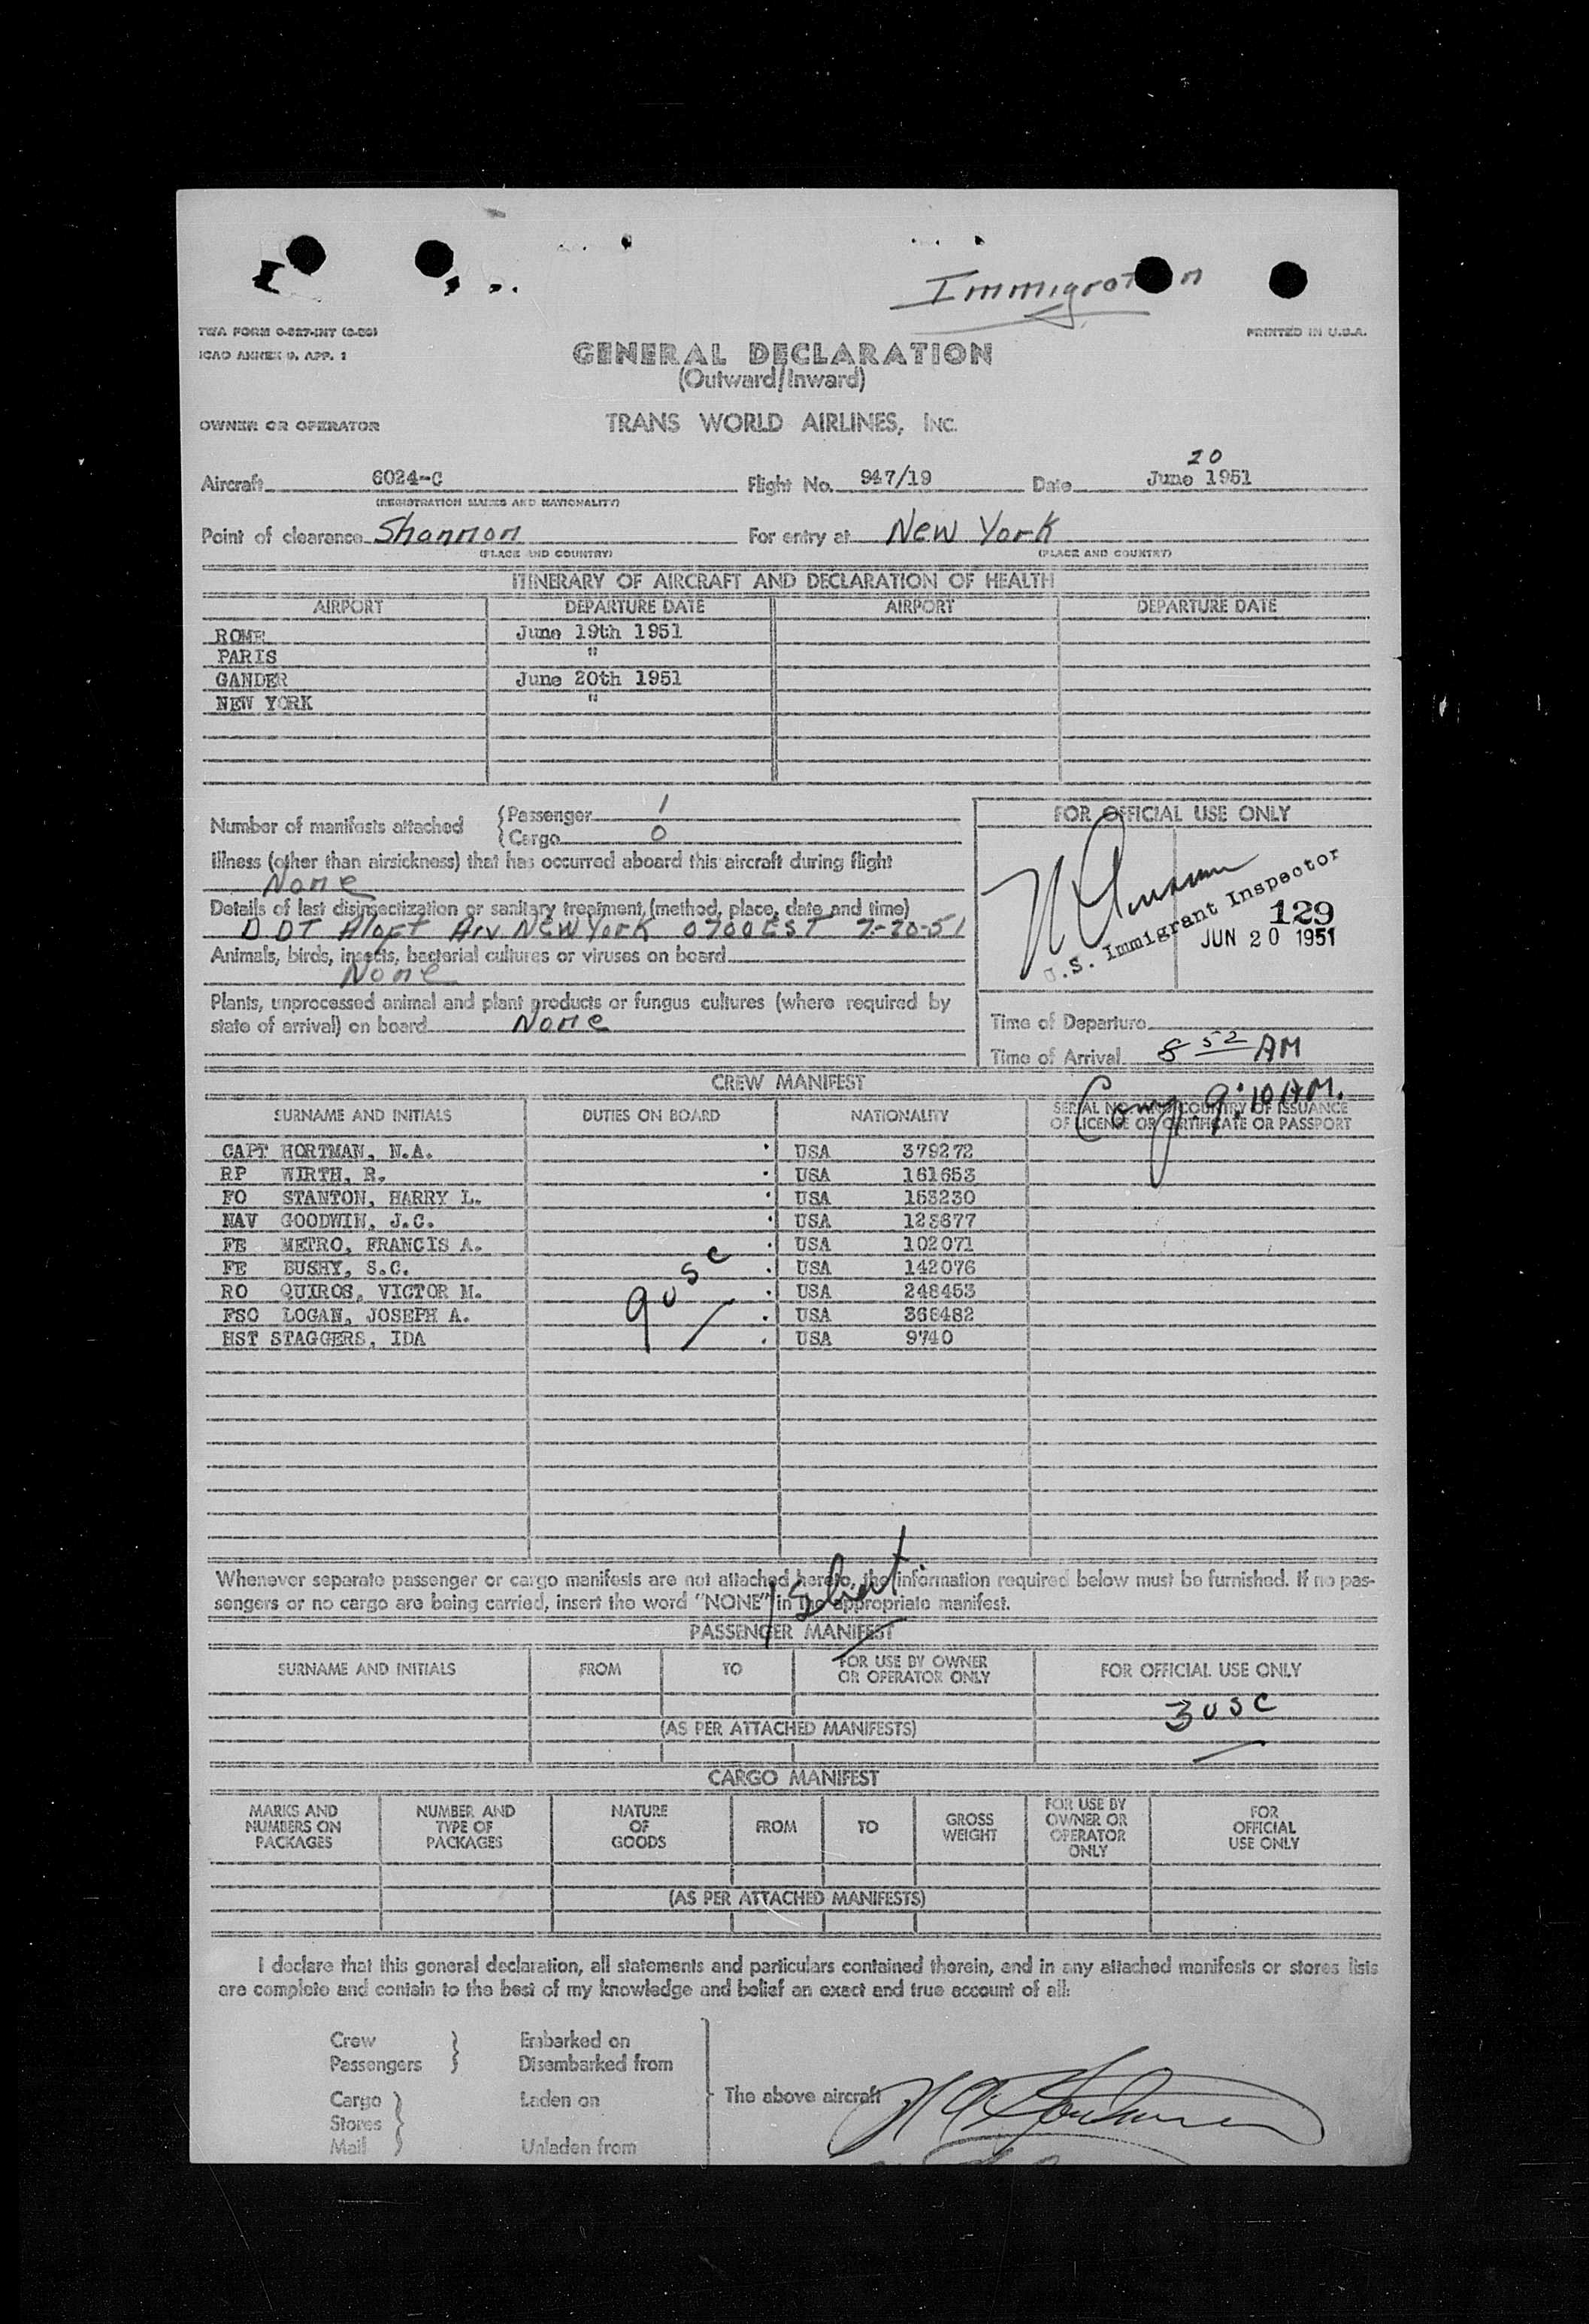 Immigration
TWA FORM O-827-INT (8-50)
PRINTED IN U.S.A.
ICAO ANNEX 9, APP. 1
GENERAL DECLARATION
(Outward/Inward)
OWNER OR OPERATOR TRANS WORLD AIRLINES, INC.
20
Aircraft 6024-C Flight No. 947/19 Date June 1951
(REGISTRATION MARKS AND NATIONALITY)
Point of clearance Shannon For entry at New York
(PLACE AND COUNTRY) (PLACE AND COUNTRY)
ITINERARY OF AIRCRAFT AND DECLARATION OF HEALTH
AIRPORT DEPARTURE DATE AIRPORT DEPARTURE DATE
ROME June 19th 1951
PARIS "
GANDER June 20th 1951
NEW YORK "
Number of manifests attached
Passenger 1
Cargo 0
Illness (other than airsickness) that has occurred aboard this aircraft during flight
None
Details of last disinsectization or sanitary treatment (method, place, date and time)
DDT Aloft Arv New York 0700 EST 7-20-51
Animals, birds, insects, bacterial cultures or viruses on board
None
Plants, unprocessed animal and plant products or fungus cultures (where required by
state of arrival) on board None
FOR OFFICIAL USE ONLY
U.S. Immigrant Inspector
129
JUN 20 1951
Time of Departure
Time of Arrival 8 52 AM
Comp. 9:10 A.M.
CREW MANIFEST
SURNAME AND INITIALS DUTIES ON BOARD NATIONALITY SERIAL NO. AND COUNTRY OF ISSUANCE
OF LICENSE OR CERTIFICATE OR PASSPORT
CAPT HORTMAN, N.A. USA 379272
RP WIRTH, R. USA 161653
FO STANTON, HARRY L. USA 153230
NAV GOODWIN, J.C. USA 123677
FE METRO, FRANCIS A. USA 102071
FE BUSHY, S.C. USA 142076
RO QUIROS, VICTOR M. USA 248453
FSO LOGAN, JOSEPH A. USA 366482
HST STAGGERS, IDA USA 9740
9 USC
Whenever separate passenger or cargo manifests are not attached hereto, the information required below must be furnished. If no pas-
sengers or no cargo are being carried, insert the word "NONE" in the appropriate manifest.
1 Sheet
PASSENGER MANIFEST
SURNAME AND INITIALS FROM TO FOR USE BY OWNER
OR OPERATOR ONLY FOR OFFICIAL USE ONLY
3 USC
(AS PER ATTACHED MANIFESTS)
CARGO MANIFEST
MARKS AND
NUMBERS ON
PACKAGES
NUMBER AND
TYPE OF
PACKAGES
NATURE
OF
GOODS
FROM
TO
GROSS
WEIGHT
FOR USE BY
OWNER OR
OPERATOR
ONLY
FOR
OFFICIAL
USE ONLY
(AS PER ATTACHED MANIFESTS)
I declare that this general declaration, all statements and particulars contained therein, and in any attached manifests or stores lists
are complete and contain to the best of my knowledge and belief an exact and true account of all:
Crew Embarked on
Passengers Disembarked from
Cargo Laden on
Stores
Mail Unladen from
The above aircraft
N A Hortman